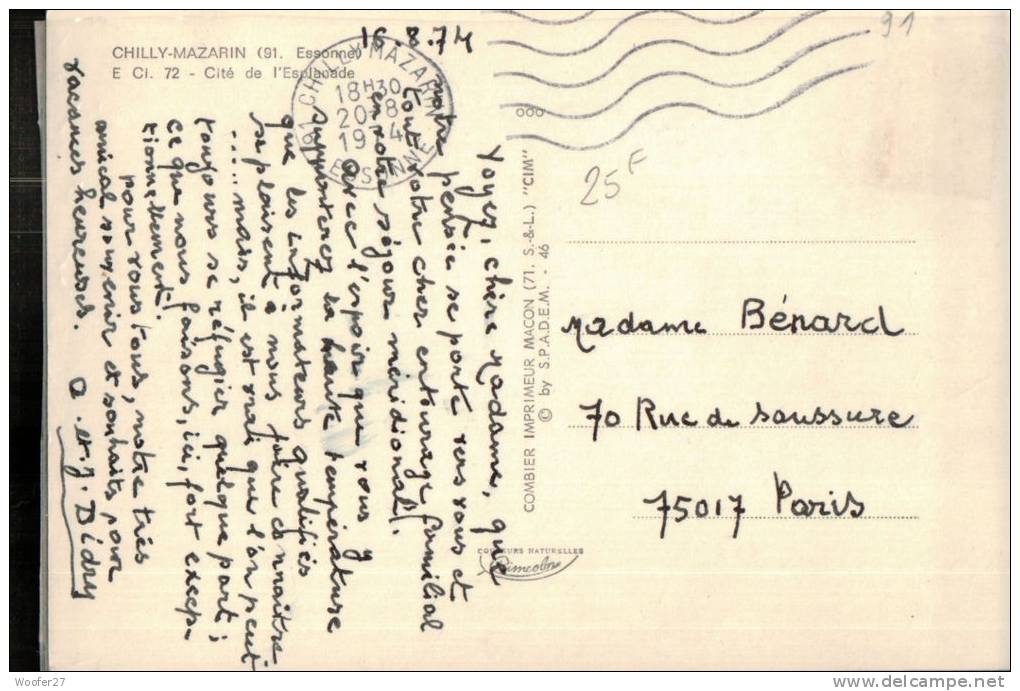 CHILLY-MAZARIN (91. Essonne)
E Ci. 72 - Cité de l'Esplanade
16.8.74
Voyez, chère Madame, que
notre pensée se porte vers vous et
tout votre cher entourage familial
en votre séjour méridional!
Avec l'espoir que vous y
supporterez la haute température
que les informateurs qualifiés
se plaisent à nous faire connaître
.... mais, il est vrai que l'on peut
toujours se réfugier quelque part;
ce que nous faisons, ici, fort excep-
tionnellement!
pour vous tous, notre très
amical souvenir et souhaits pour
vacances heureuses.
et J. Bédry
CHILLY MAZARIN
18H30
20-8
1974
91 ESSONNE
91
000
25F
COMBIER IMPRIMEUR MACON (71. S.-&-L.) "CIM"
© by S.P.A.D.E.M. - 46
COULEURS NATURELLES
Cimcolor
Madame Bénard
70 Rue de Saussure
75017 Paris
Woofer27
www.delcampe.net